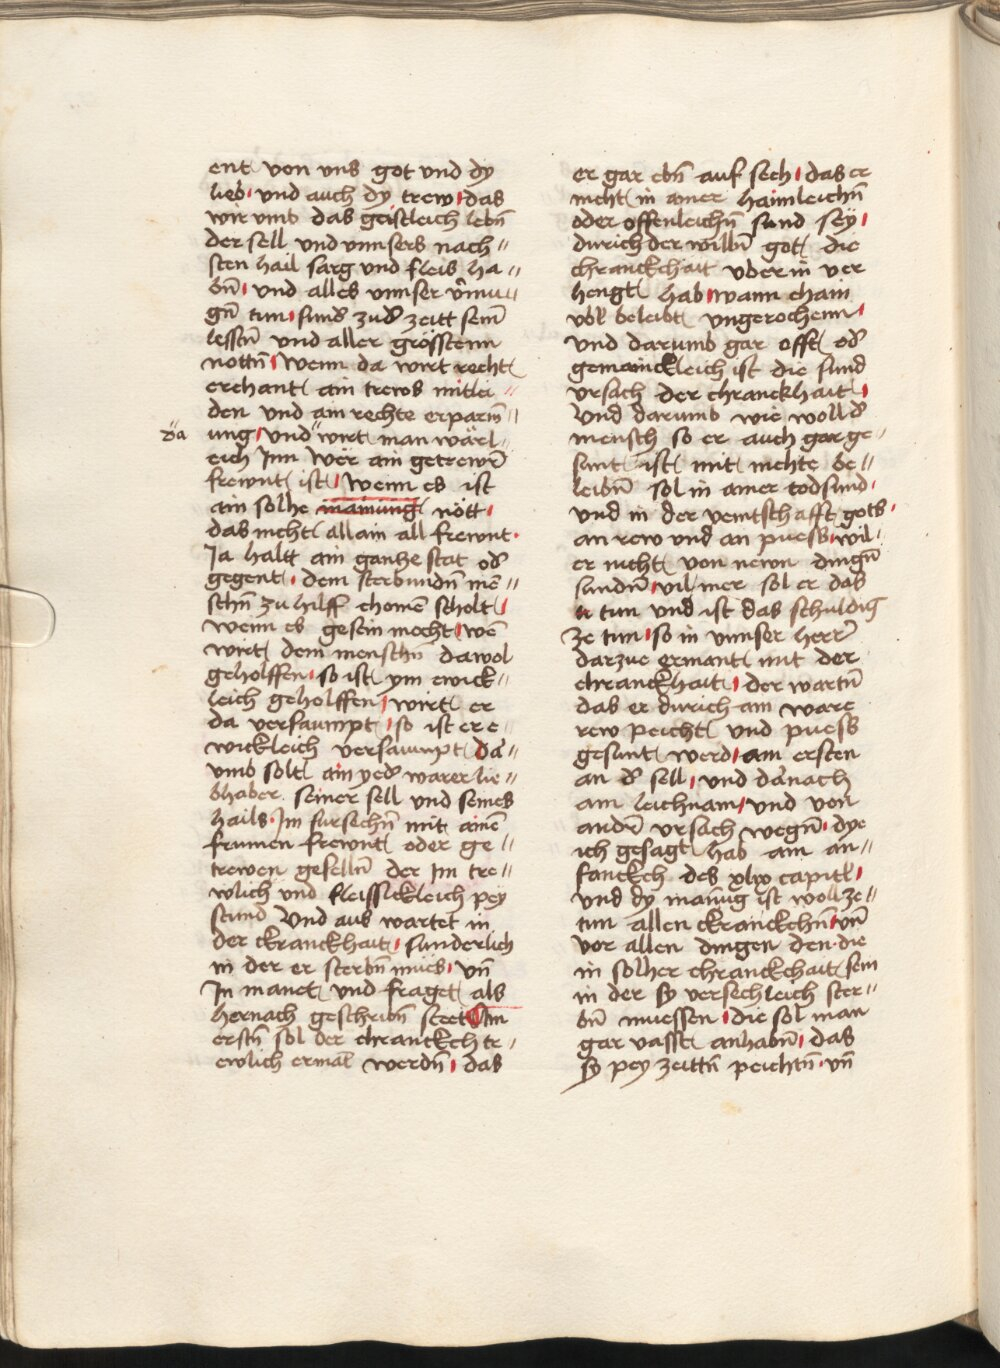 ent von vns got vnd dy
lieb vnd auch dy trew das
wir vmb das geistleich lebn̄
der sell vnd vnnsers nach〃
sten hail sarg vnd fleis ha〃
bn̄ vnd alles vnnser v̄mu〃
gn̄ tun sund̄ zud̄ zeitt sem̄
lesstn̄ vnd aller grösstenn
nottn̄ Wenn da wirt recht
erchant ain trews mitlei
den vnd ain rechte erparm̄〃
ung vnd wirt man wärl〃
da
eich Inn Wer ain getrewr̄
frewnt ist Wenn es ist
ain solhe mainung nött
das nicht allain all frewnt
Ja haltt ain gantze stat od̄
gegent dem sterbundn̄ men̄〃
schn̄ zu hilff chomē scholt
wenn es gesein mocht wē
wirt dem menschn dawol
geholffen so ist ym ewick〃
leich geholffen wirt er
da versaumpt so ist er e〃
wickleich versaumpt dar〃
vmb solt ain yed̄ warer lie〃
bhaber seiner sell vnd seines
hails Im fursechn̄ mit ainē
frumen frewnt oder ge〃
trewen geselln̄ der Im tre〃
wlich vnd fleissickleich pey
stund Vnd aus wartet in
der ckranckhait sunderlich
in der er sterbn̄ mues vn̄
In manet vnd fraget als
hernach geschribn̄ steet Am
erstn̄ sol der chranckch tr〃
ewlich ermal werdn̄ das
er gar ebn̄ auf sech das er
nicht in ainer haimleichn̄
oder offenleichn̄ sund sey
durich der willn̄ got die
chranckhait vber in ver
hengt hab wann chain
vbl beleibt vngerochenn
vnd darumb gar offt od̄
gemainckleich ist die sund
vrsach der chranckhait
Vnd darumb wie woll d̄
mensch so er auch gar ge〃
sunt ist mit nichte be〃
leibn̄ sol in ainer todsund
vnd in der veintschafft gots
an rew vnd an puess wil〃
er nicht von newn dingn̄
sundn̄ vil mer sol er das
tun vnd ist das schuldig
ze tun so in vnnser herr̄
darzue ermant mit der
chranckhait der wartn̄
das er durich ain ware
rew peicht vnd puess
gesunt werd am ersten
an d̄ sell vnd darnach
am leichnam vnd von
andr̄ vrsach wegn̄ dye
ich gesagt hab am an〃
fanckch des xlw capitl
vnd dy manūg ist woll ze〃
tun allen ckranckchn̄ vn̄
vor allen dingen den die
in solher chranckchait sein
in der sy versechleich ster〃
bn̄ muessen die sol man
gar vasst anhabn̄ das
sy pey zeittn̄ peichtn̄ vn̄